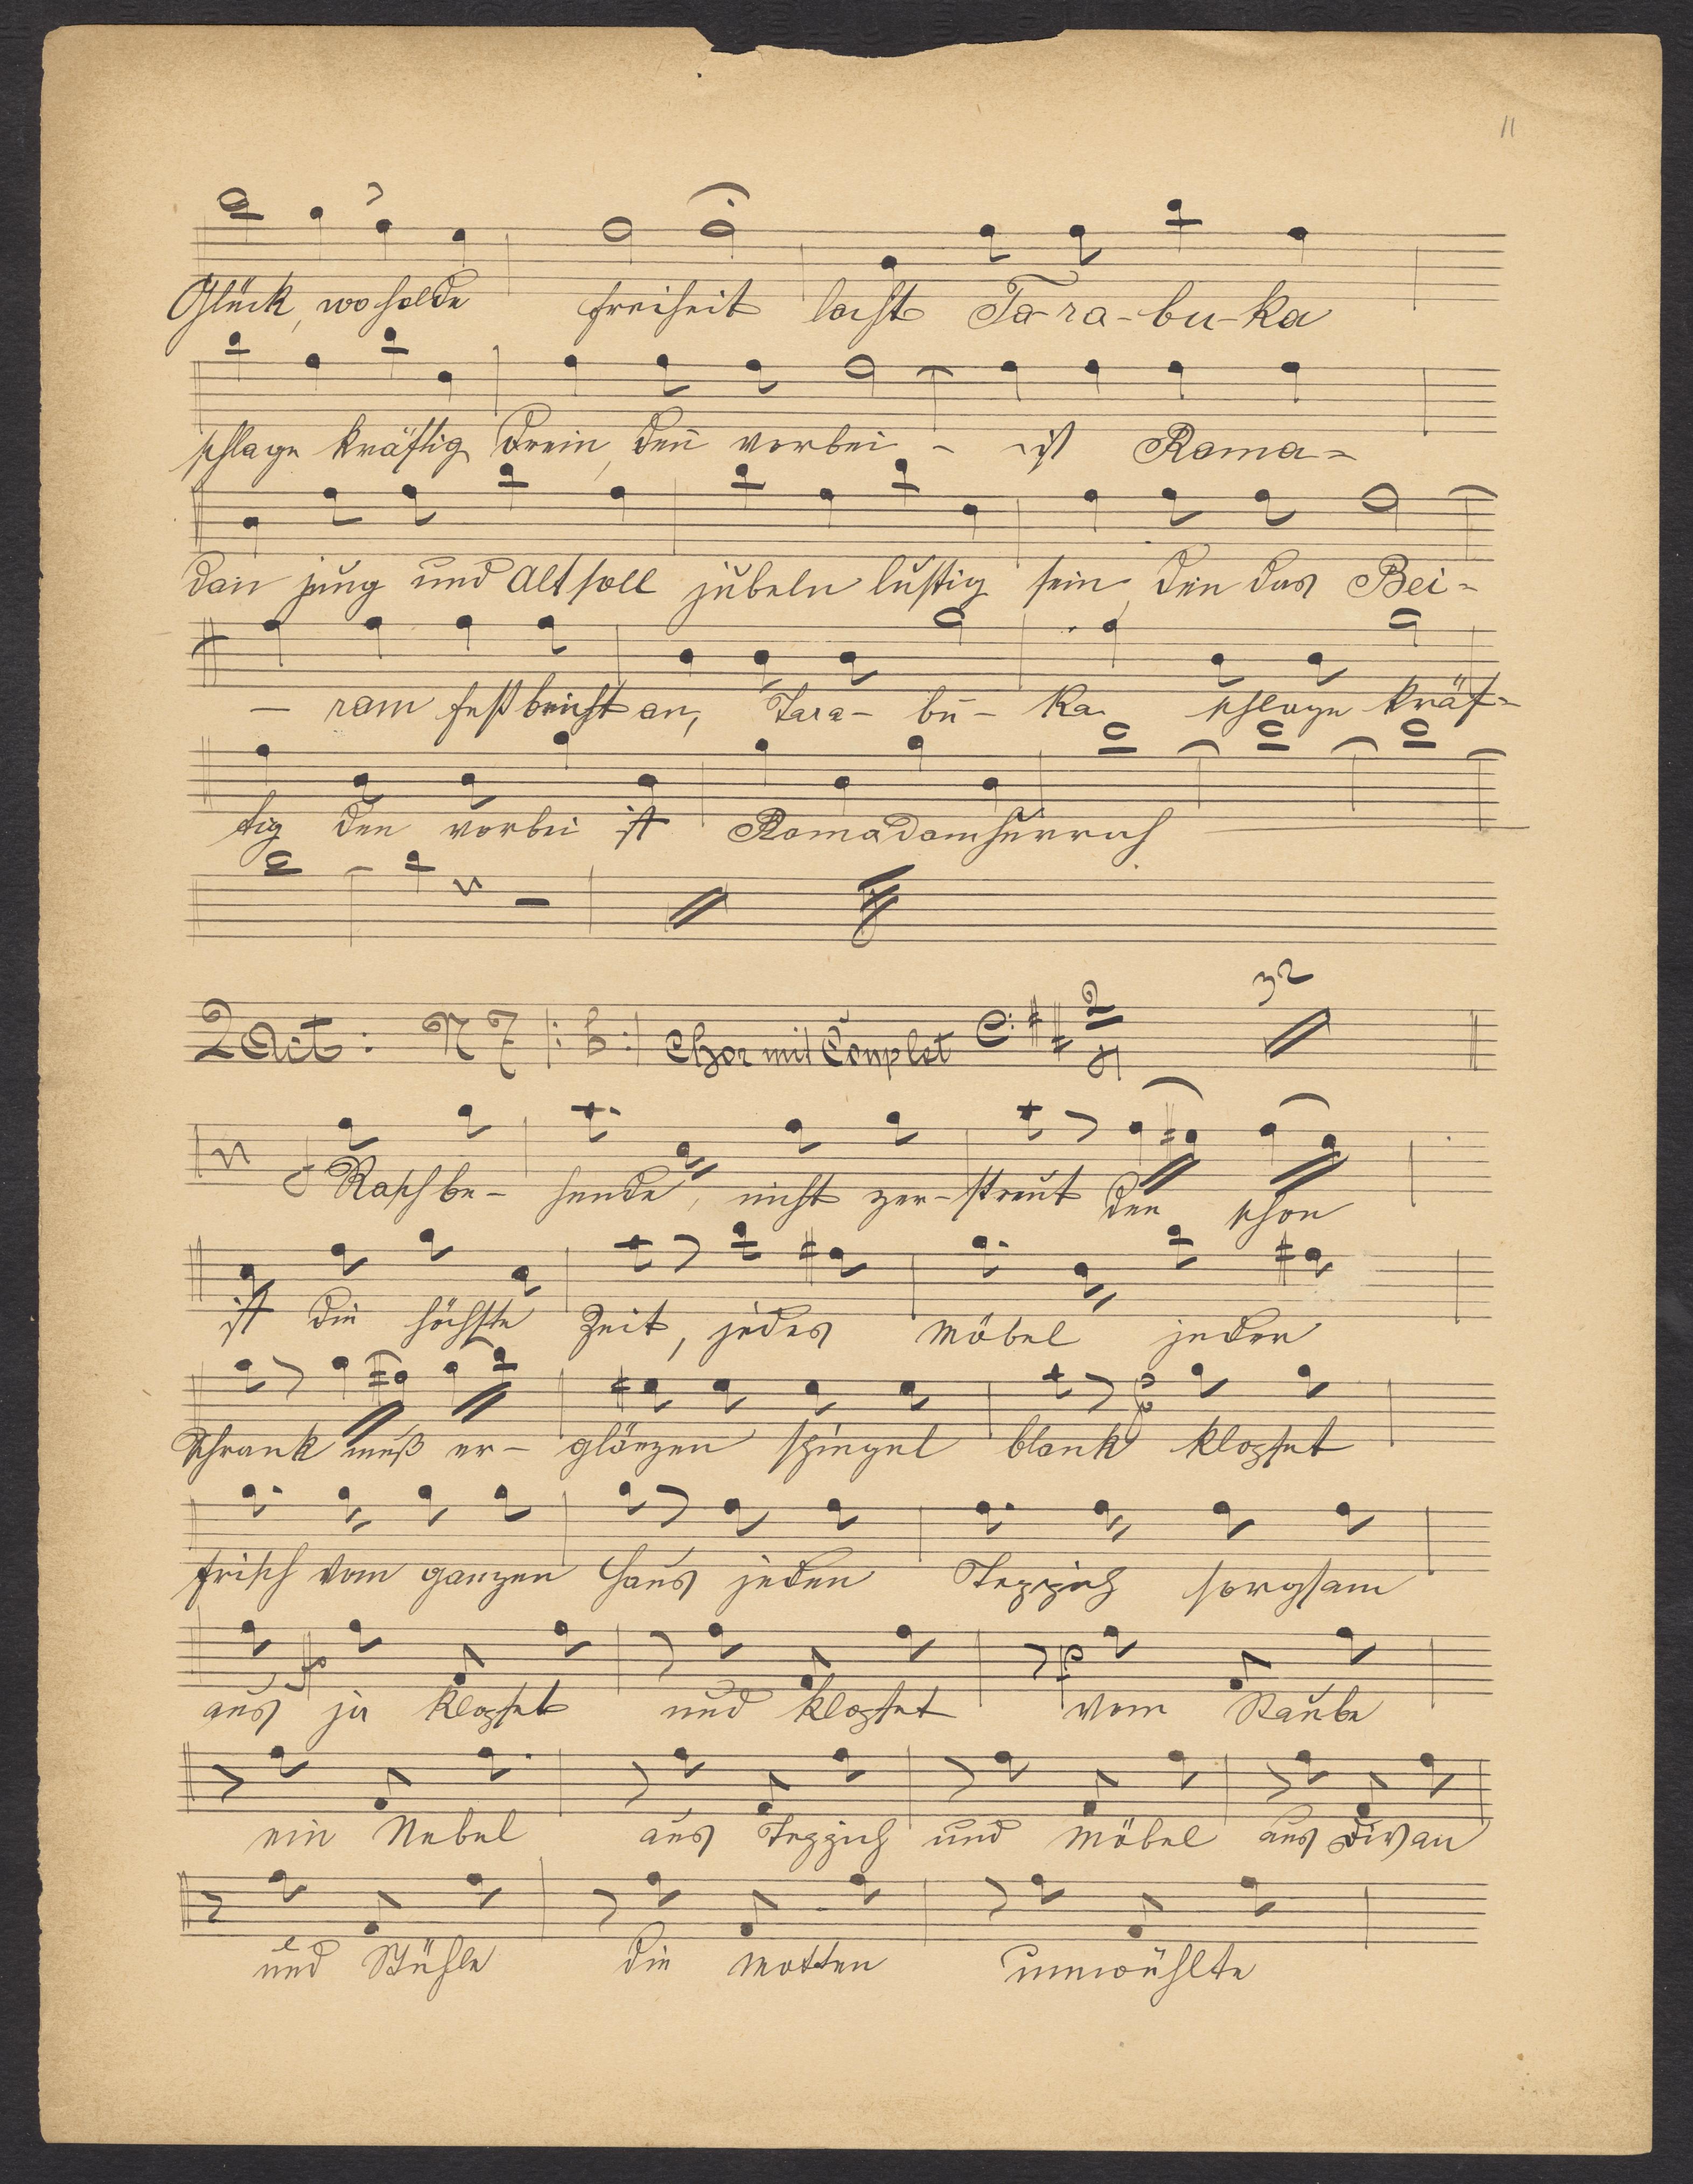 11
Glück, wo holde freiheit lacht Ta-ra-bu-ka
schlage kräftig drein, den̄ vorbei - - ist Rama=
dan jung und Alt soll jubeln lustig sein, den das Bei=
- ram fest bricht an, Tara- bu- ka schlage kräf=
tig den vorbei ist Ramadam hurrah
2 Act: N 7 |: b :| Chor mit Couplet 2 32
Rasch be- hende, nicht zer- streut den schon
ist die höchste Zeit, jedes Möbel jeder
Schrank muß er- glänzen spiegel blank klopfet
frisch vom ganzen Haus jeden Teppich sorgsam
aus ja klopfet und klopfet vom Staube
ein Nebel aus Teppich und Möbel aus Divan
und Stühle die Motten umwühlte